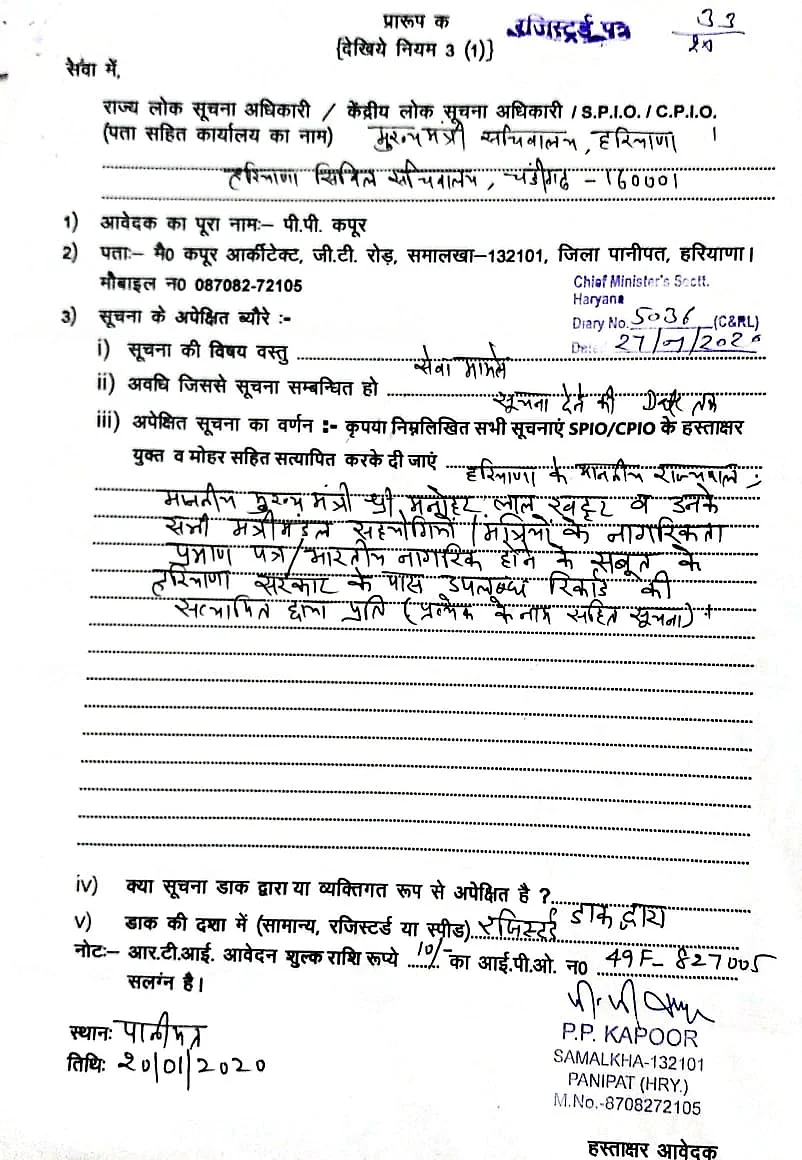 प्रारूप क
रजिस्टर्ड पत्र
33
{देखिये नियम 3 (1)}
सेवा में,
राज्य लोक सूचना अधिकारी / केंद्रीय लोक सूचना अधिकारी / S.P.I.O. / C.P.I.O.
(पता सहित कार्यालय का नाम) मुख्यमंत्री सचिवालय, हरियाणा ।
हरियाणा सिविल सचिवालय, चंडीगढ़ - 160001
1) आवेदक का पूरा नामः– पी.पी. कपूर
2) पताः– मै0 कपूर आर्कीटेक्ट, जी.टी. रोड़, समालखा–132101, जिला पानीपत, हरियाणा।
मौबाइल न0 087082-72105
Chief Minister's Sectt.
Haryana
Diary No. 5036 (C&RL)
Date 27/1/2020
3) सूचना के अपेक्षित ब्यौरे :-
i) सूचना की विषय वस्तु सेवा मामले
ii) अवधि जिससे सूचना सम्बन्धित हो सूचना देने की Date तक
iii) अपेक्षित सूचना का वर्णन :- कृपया निम्नलिखित सभी सूचनाएं SPIO/CPIO के हस्ताक्षर
युक्त व मोहर सहित सत्यापित करके दी जाएं हरियाणा के माननीय राज्यपाल ;
माननीय मुख्य मंत्री श्री मनोहर लाल खट्टर व उनके
सभी मंत्रीमंडल सहयोगियों/मंत्रियों के नागरिकता
प्रमाण पत्र/भारतीय नागरिक होने के सबूत के
हरियाणा सरकार के पास उपलब्ध रिकार्ड की
सत्यापित छाया प्रति (प्रत्येक के नाम सहित सूचना)
iv) क्या सूचना डाक द्वारा या व्यक्तिगत रूप से अपेक्षित है ? डाक द्वारा
v) डाक की दशा में (सामान्य, रजिस्टर्ड या स्पीड) रजिस्टर्ड
नोटः– आर.टी.आई. आवेदन शुल्क राशि रूप्ये 10/- का आई.पी.ओ. न0 49F- 827005
सलंग्न है।
स्थानः पानीपत
तिथिः 20/01/2020
P.P. KAPOOR
SAMALKHA-132101
PANIPAT (HRY.)
M.No.-8708272105
हस्ताक्षर आवेदक